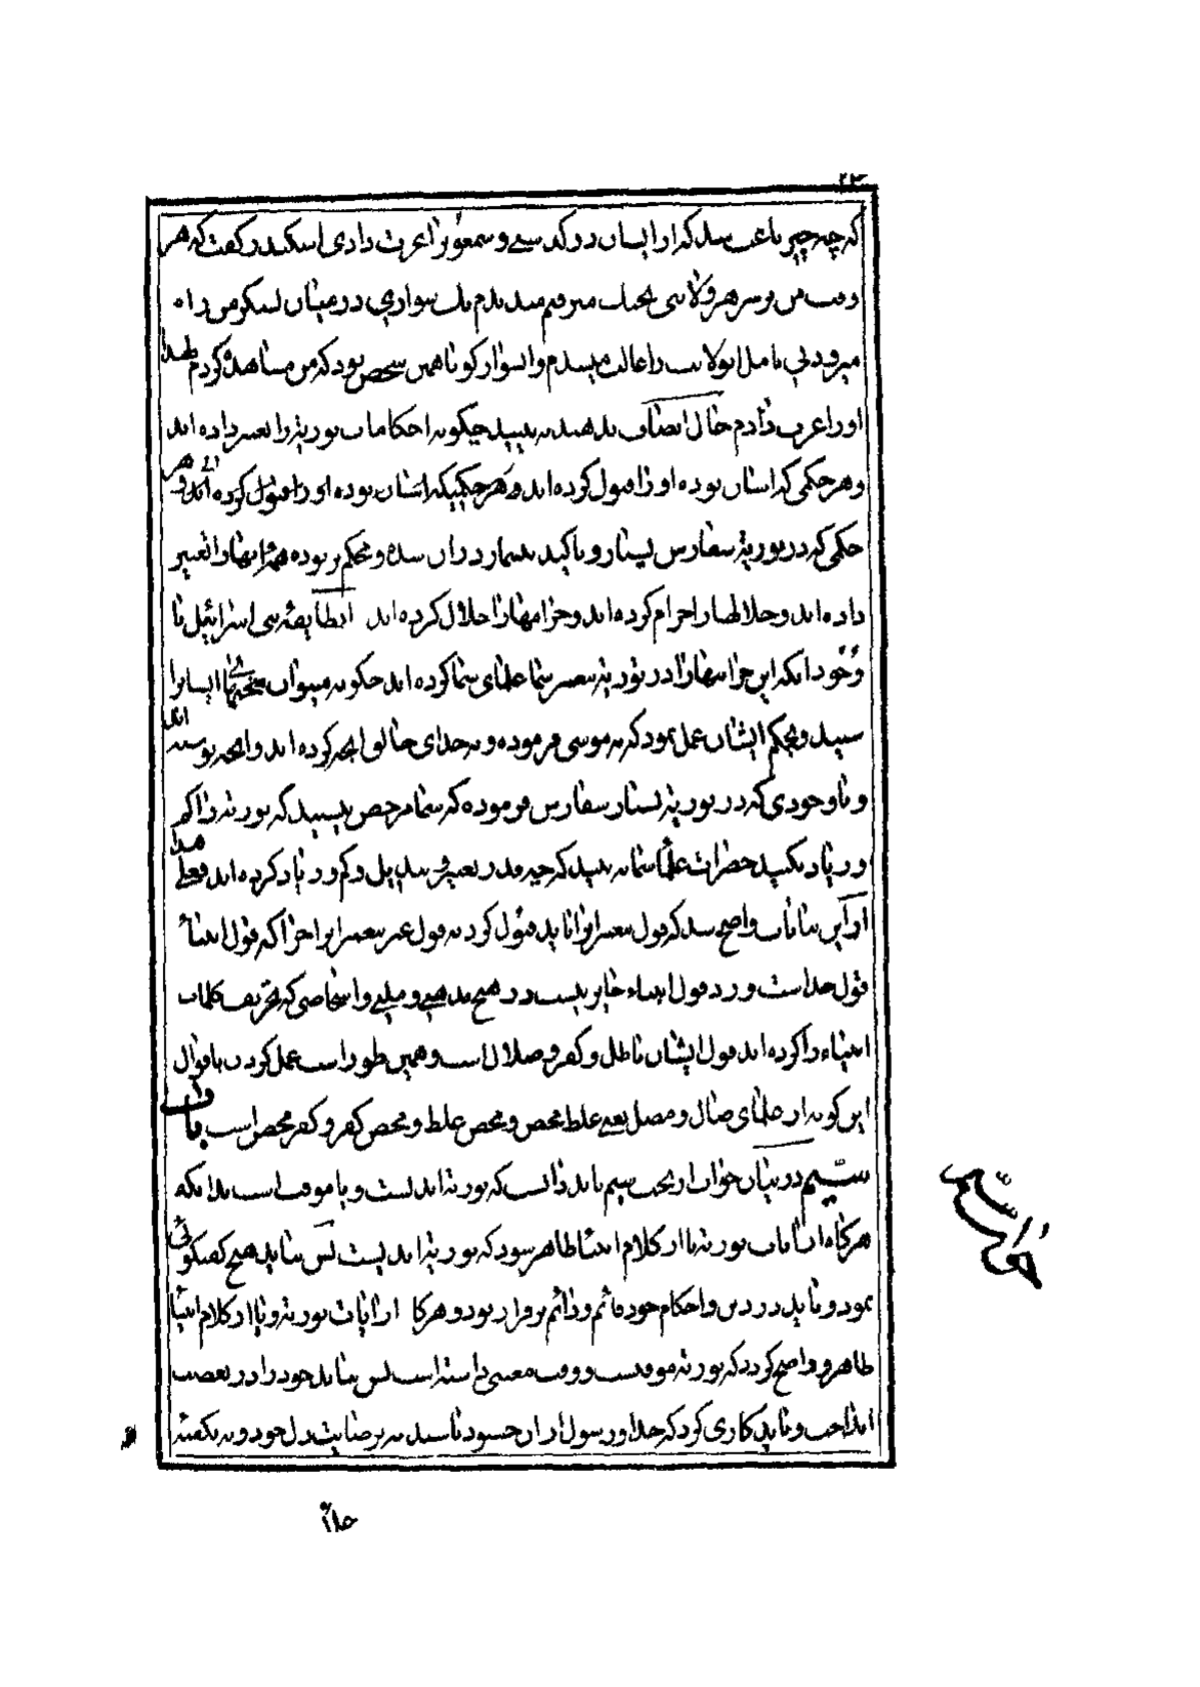 ۲۳
که چه چیز باعث شد که از ایشان در گذشتی و شمعون را عزت دادی اسکندر گفت که هر
وقت من بر سر هر ولایتی بجنك میرفتم میدیدم یك سواری در میان لشکر من راه
میرود پس تا من این ولایت را غالب میشدم و آنسوار گویا همین شخص بود که من مشاهده کردم لهذا
او را عزت دادم حال انصاف بدهید به بینید چگونه احکامات توریة را تغییر داده اند
و هر حکمی که آسان بوده او را قبول کرده اند و هر حکمیکه آسان بوده او را قبول کرده اند و هر
حکمی که در توریة سفارش بسیار و تاکید بیشمار در آن شده و محکم تر بوده همه آنها را تغییر
داده اند و حلالها را حرام کرده اند و حرامها را حلال کرده اند ایطایفه بنی اسرائیل با
وجود آنکه این خرابیها را در توریة شما علمای شما کرده اند چگونه میتوان سخنهای ایشانرا
شنید و بحکم ایشان عمل نمود که نه موسی فرموده و نه خدای خالق آنچه کرده اند و آنچه نوشته اند
و با وجودی که در توریة بسیار سفارش فرموده که شما مرخص نیستید که توریة را کم
و زیاد بکنید حضرات علما شما به بینید که چقدر تغییر و تبدیل و کم و زیاد کرده اند فعلی هذا
از این بیانات واضح شد که قول پیغمبرانرا باید قبول کرد نه قول غیر پیغمبرانرا چرا که قول انبیاء
قول خداست و رد قول انبیاء جایز نیست در هیچ مذهبی و ملتی و اشخاصی که تحریف کلمات
انبیاء را کرده اند قول ایشان باطل و کفر و ضلال است و همین طور است عمل کردن باقوال
این گونه از علمای ضال و مضل یعنی غلط محض و محض غلط و محض کفر و کفر محض است باب
سیم در بیان جواب از بحث سیم باید دانست که توریة ابدیست و یا موقت است بدانکه
هرگاه از آیات توریة یا از کلام انبیا ظاهر شود که توریة ابدیست پس نباید هیچ گفتگوئی
نمود و باید در دین و احکام خود قائم و دائم برقرار بود و هرگاه از آیات توریة و یا از کلام انبیا
ظاهر و واضح گردد که توریة موقتست و وقت معینی داشته است پس نباید خود را در تعصب
انداخت و باید کاری کرد که خدا و رسول از آن خشنود باشند نه برضایت دل خود و نه بگفته
جواب سیم